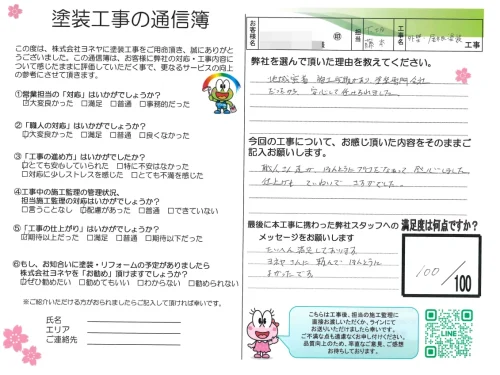 塗装工事の通信簿
この度は、株式会社ヨネヤに塗装工事をご用命頂き、誠にありがと
うございました。この通信簿は、お客様に弊社の対応・工事内容に
ついて感じたままに評価していただく事で、更なるサービスの向上
の参考にさせて頂きます。
①営業担当の「対応」はいかがでしょうか?
☑大変良かった □満足 □普通 □事務的だった
②「職人の対応」はいかがでしょうか?
☑大変良かった □満足 □普通 □良くなかった
③「工事の進め方」はいかがでしたか?
☑とても安心していられた □特に不安はなかった
□対応に少しストレスを感じた □とても不満を感じた
④工事中の施工監理の管理状況、
担当施工監理の対応はいかがでしたか?
□言うことなし ☑配慮があった □普通 □できていない
⑤「工事の仕上がり」はいかがでしょうか?
☑期待以上だった □満足 □普通 □期待以下だった
⑥もし、お知合いに塗装・リフォームの予定がありましたら
株式会社ヨネヤを「お勧め」頂けますでしょうか?
☑ぜひ勧めたい □勧めてもいい □わからない □勧められない
※ご紹介いただける方がおられましたらご記入して頂ければ幸いです。
氏名
エリア
ご連絡先
お客様名
様
担当
藤本
工事名
外壁 屋根塗装
工事
弊社を選んで頂いた理由を教えてください。
地域密着 施工実績があり 塗装専門会社
だったから 安心して任せられました。
今回の工事について、お感じ頂いた内容をそのままご
記入お願いします。
職人さん達が、ほんとうに
仕上りも ていねいで
最後に本工事に携わった弊社スタッフへの
メッセージをお願いします
たいへん満足しております
ヨネヤさんに 頼んで ほんとうに
よかったです
満足度は何点ですか?
100/100
こちらは工事後、担当の施工監理に
直接お渡しいただくか、ラインにて
お送りいただけましたら幸いです。
ご不満な点も遠慮なくお申し付けください。
品質向上のため、率直なご意見、ご感想
お待ちしております。
LINE